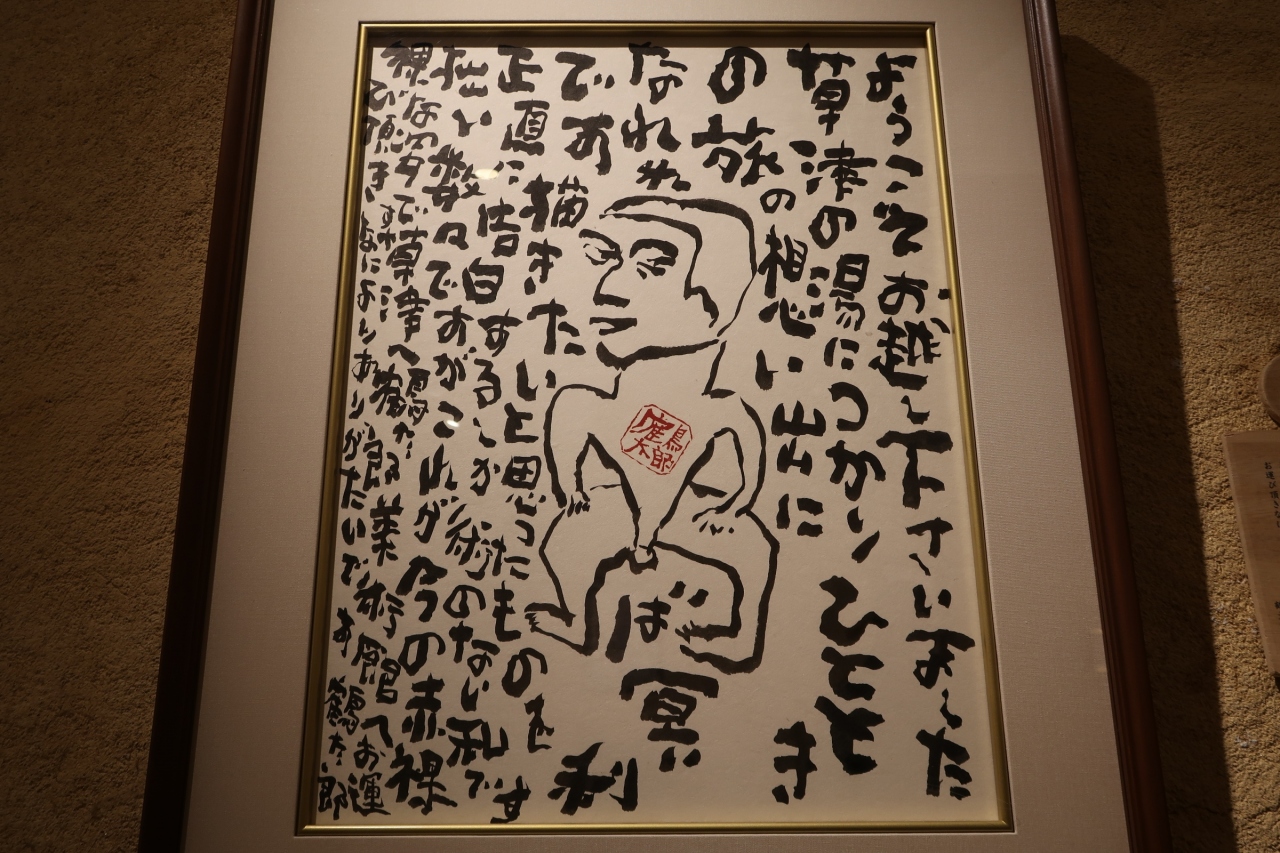 ようこそお越し下さいました
草津の湯につかりひととき
の旅の想い出に
なれれば冥利
であ
描きたいと思ったものを
正直に告白するしか術のない私です
拙い数々であがこれが今の赤裸
裸な で草津へ 美術館へお運
び頂き なによりありがたいであ 鶴太郎
鶴太郎